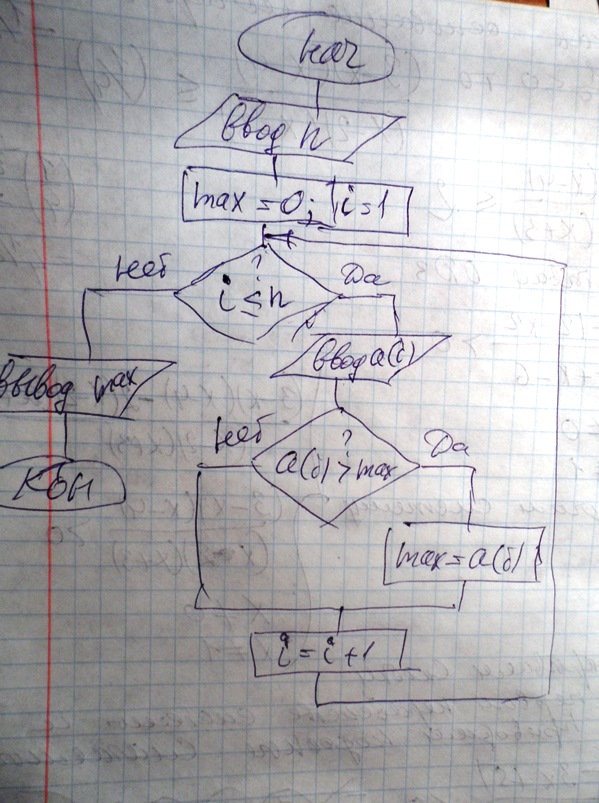 нач
Ввод n
max = 0; i = 1
Нет
?
i ≤ n
Да
Вывод max
Ввод a(i)
Кон
Нет
?
a(i) > max
Да
max = a(i)
i = i + 1